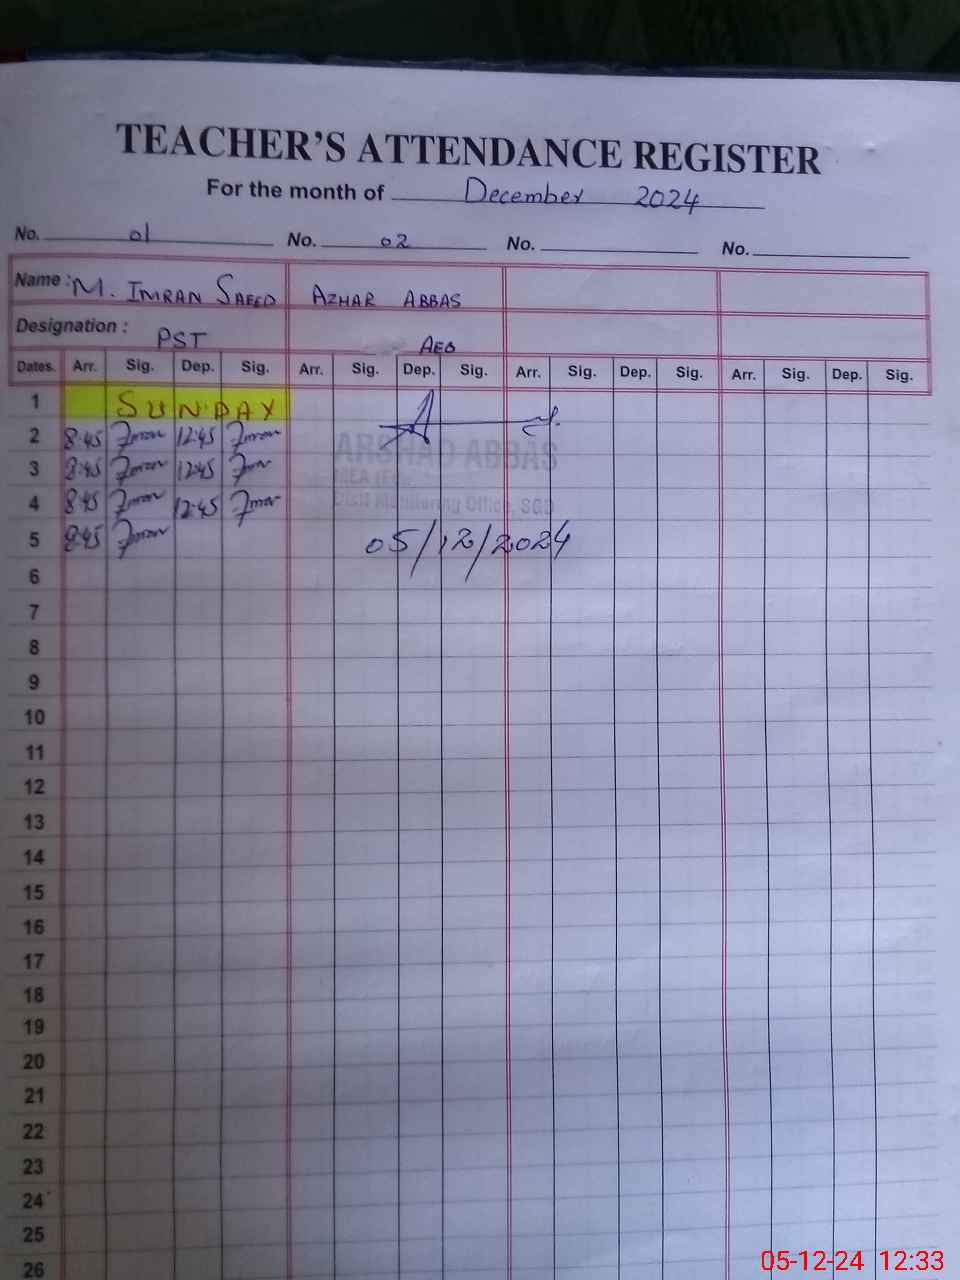 TEACHER'S ATTENDANCE REGISTER
For the month of December 2024
No. 01 No. 02 No. No.
Name : M. IMRAN SAEED AZHAR ABBAS
Designation : PST AEO
Dates. Arr. Sig. Dep. Sig. Arr. Sig. Dep. Sig. Arr. Sig. Dep. Sig. Arr. Sig. Dep. Sig.
1 SUNDAY
2 8:45 Imran 12:45 Imran
ARSHAD ABBAS
3 8:45 Imran 12:45 Imran
MEA
4 8:45 Imran 12:45 Imran
Distt Monitoring Office, SGD
5 8:45 Imran 05/12/2024
6
7
8
9
10
11
12
13
14
15
16
17
18
19
20
21
22
23
24
25
26
05-12-24 12:33